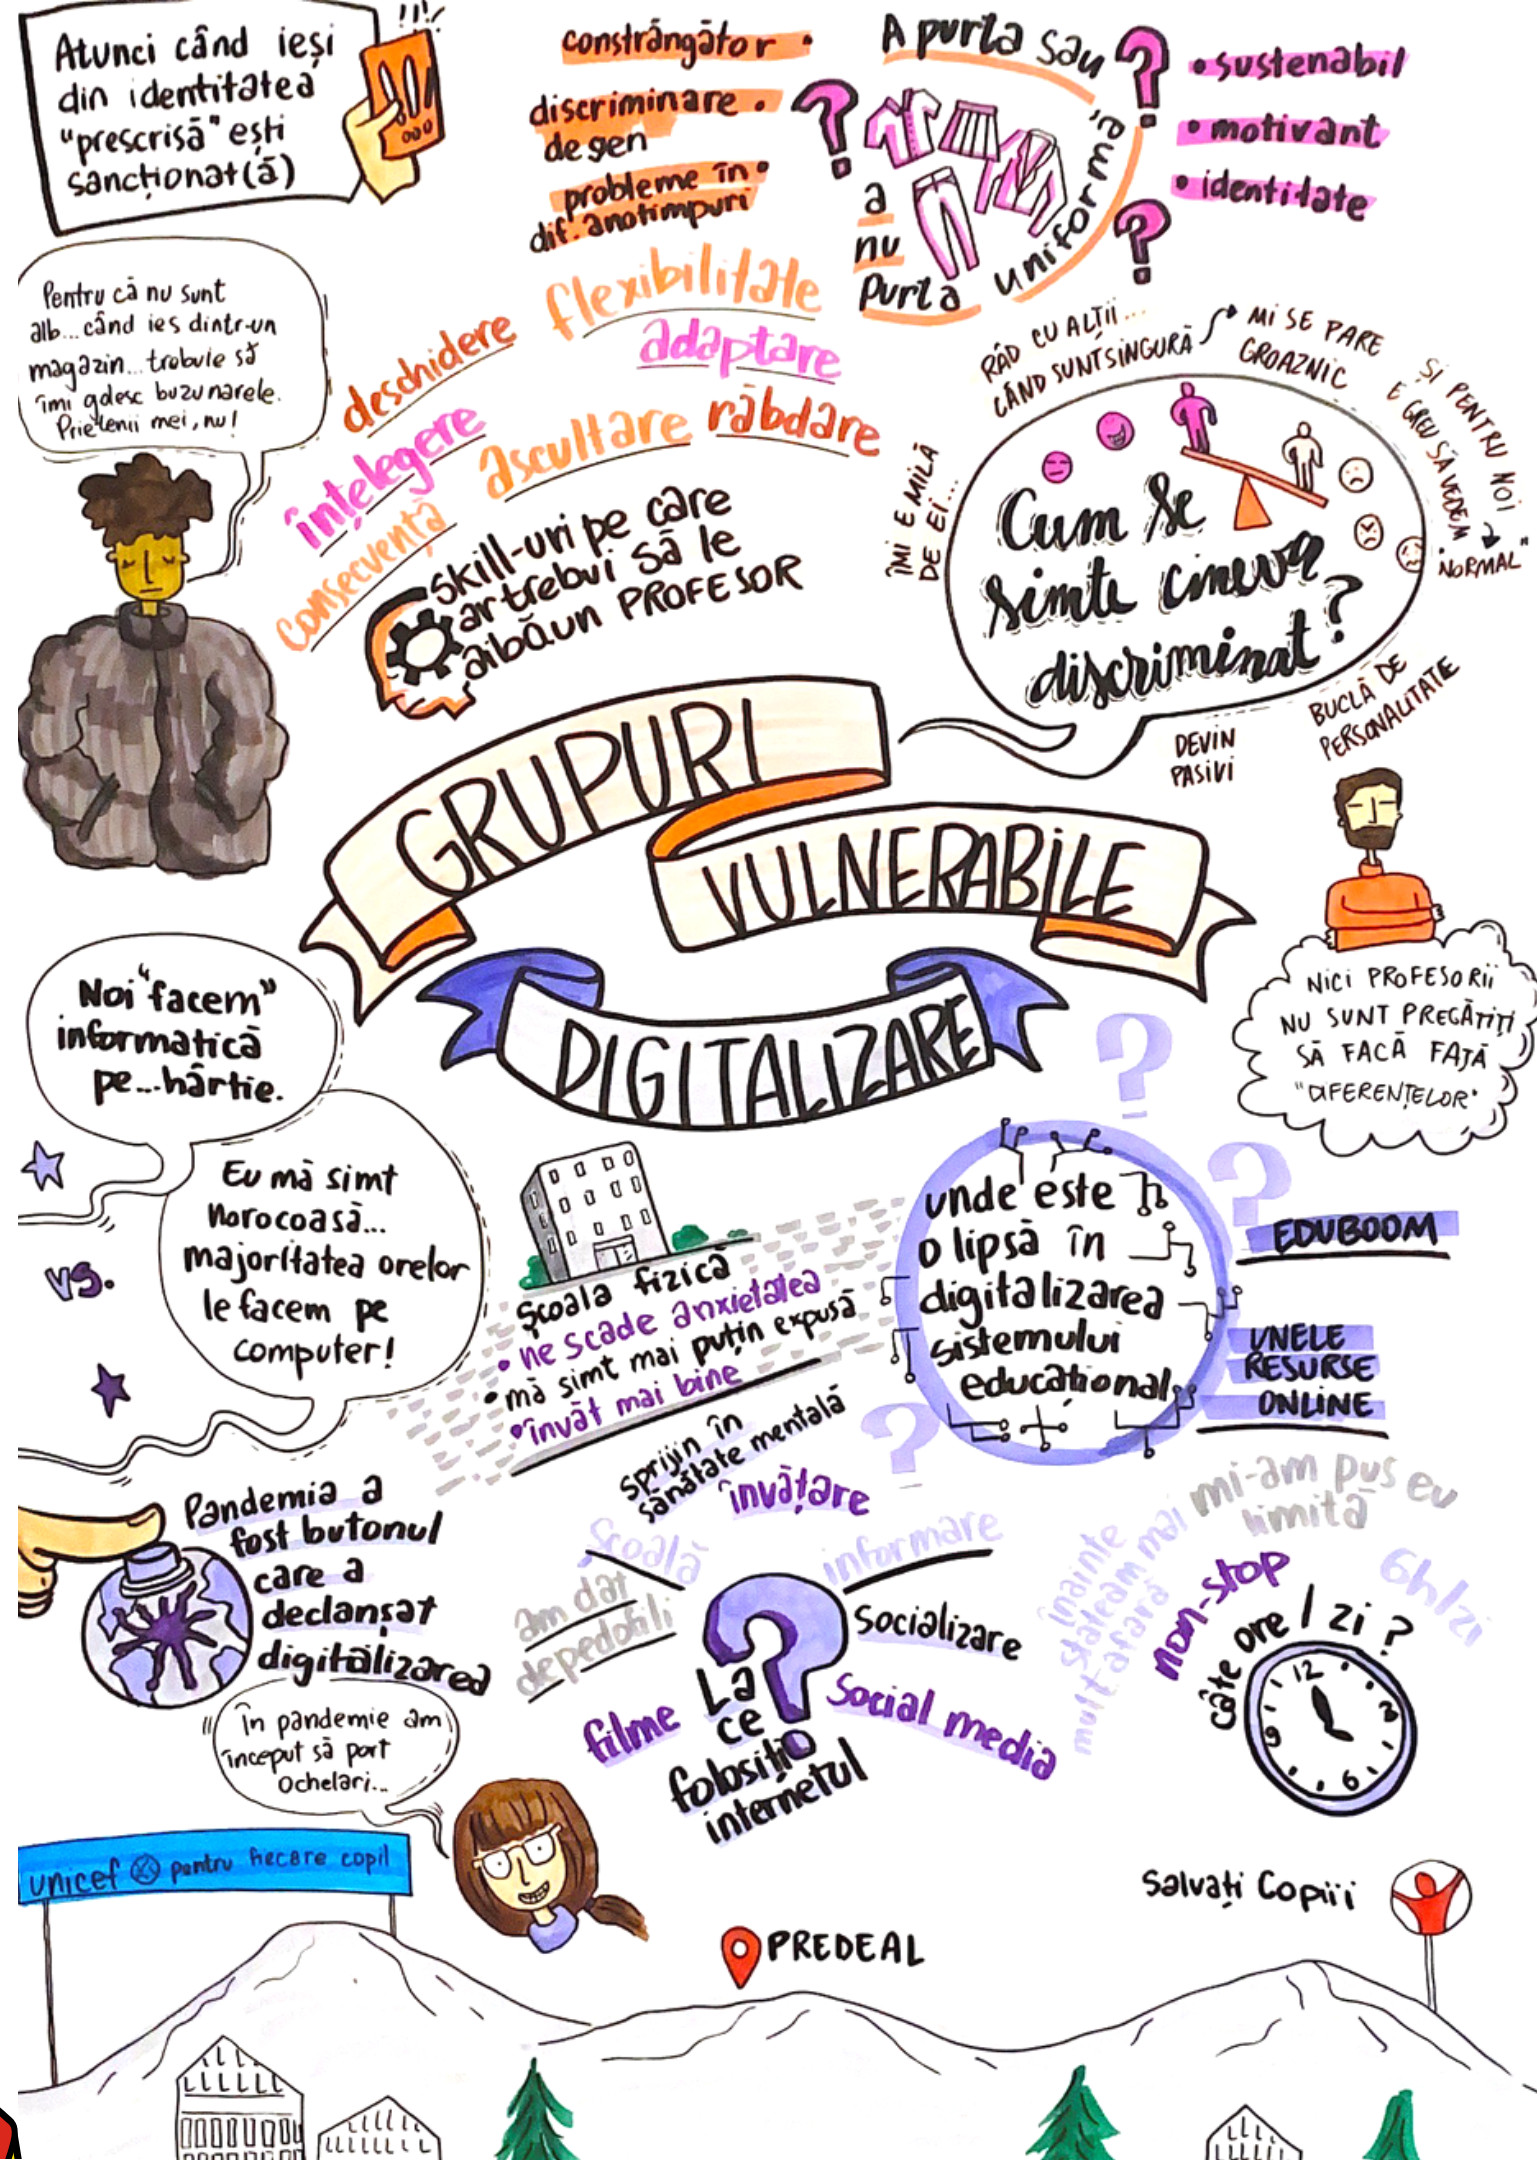 Atunci când ieși
din identitatea
"prescrisă" ești
sancționat(ă)
!!!
constrângător •
discriminare •
de gen
probleme în •
dif. anotimpuri
A purta sau
a
nu
purta
uniformă
?
?
?
• sustenabil
• motivant
• identitate
Pentru că nu sunt
alb... când ies dintr-un
magazin... trebuie să
îmi golesc buzunarele.
Prietenii mei, nu!
flexibilitate
deschidere
adaptare
înțelegere
ascultare
răbdare
consecvență
Skill-uri pe care
ar trebui să le
aibă un PROFESOR
RÂD CU ALȚII...
CÂND SUNT SINGURĂ
MI SE PARE
GROAZNIC
ȘI PENTRU NOI
E GREU SĂ VEDEM
"NORMAL"
ÎMI E MILĂ
DE EI...
Cum se
simte cineva
discriminat?
BUCLĂ DE
PERSONALITATE
DEVIN
PASIVI
GRUPURI
VULNERABILE
DIGITALIZARE
NICI PROFESORII
NU SUNT PREGĂTIȚI
SĂ FACĂ FAȚĂ
"DIFERENȚELOR"
Noi "facem"
informatică
pe...hârtie.
vs.
Eu mă simt
norocoasă...
majoritatea orelor
le facem pe
computer!
Școala fizică
• ne scade anxietatea
• mă simt mai puțin expusă
• învăț mai bine
unde este
o lipsă în
digitalizarea
sistemului
educațional
?
?
?
EDUBOOM
UNELE
RESURSE
ONLINE
Pandemia a
fost butonul
care a
declanșat
digitalizarea
În pandemie am
început să port
ochelari...
sprijin în
sănătate mentală
învățare
școală
informare
am dat
de pedofili
socializare
filme
Social media
La
ce
folosiți
internetul
?
mi-am pus eu
limită
înainte
stăteam mai
mult afară
non-stop
6h/zi
câte ore / zi ?
12
3
6
9
unicef pentru fiecare copil
PREDEAL
Salvați Copiii